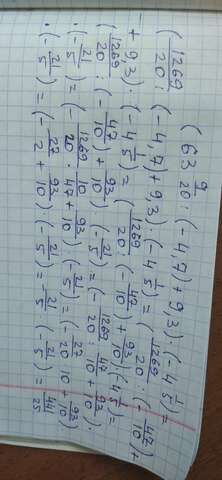 (63 9/20 : (-4,7) + 9,3) : (-4 1/5) =
(1269/20 : (-4,7) + 9,3) : (-4 1/5) = (1269/20 : (-47/10) +
+ 9,3) : (-4 1/5) = (1269/20 : (-47/10) + 93/10) : (-4 1/5) =
(1269/20 : (-47/10) + 93/10) : (-21/5) = (-1269/20 : 47/10 + 93/10) :
: (-21/5) = (-1269/20 · 10/47 + 93/10) : (-21/5) = (-27/2 + 93/10)
: (-21/5) = (-27/2 + 93/10) : (-21/5) = -21/5 : (-21/5) = 441/25